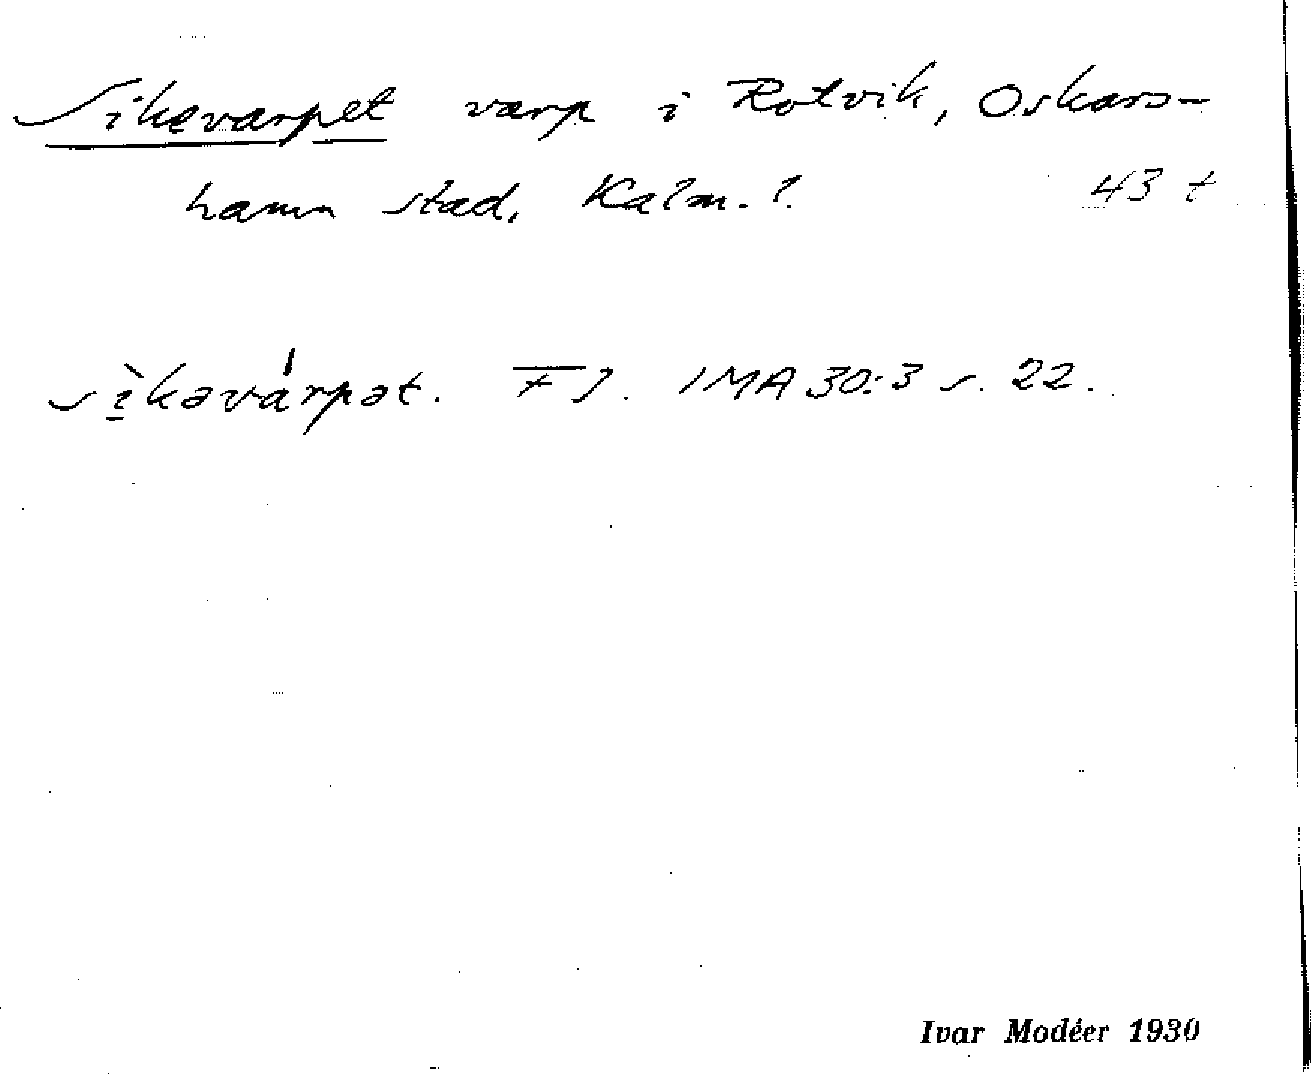 Sikevarpet varp i Rotvik, Oskars-
hamn stad, Kalm. l. 43 t
sìkəvárpət. FJ. IMA 30:3 s. 22.
Ivar Modéer 1930